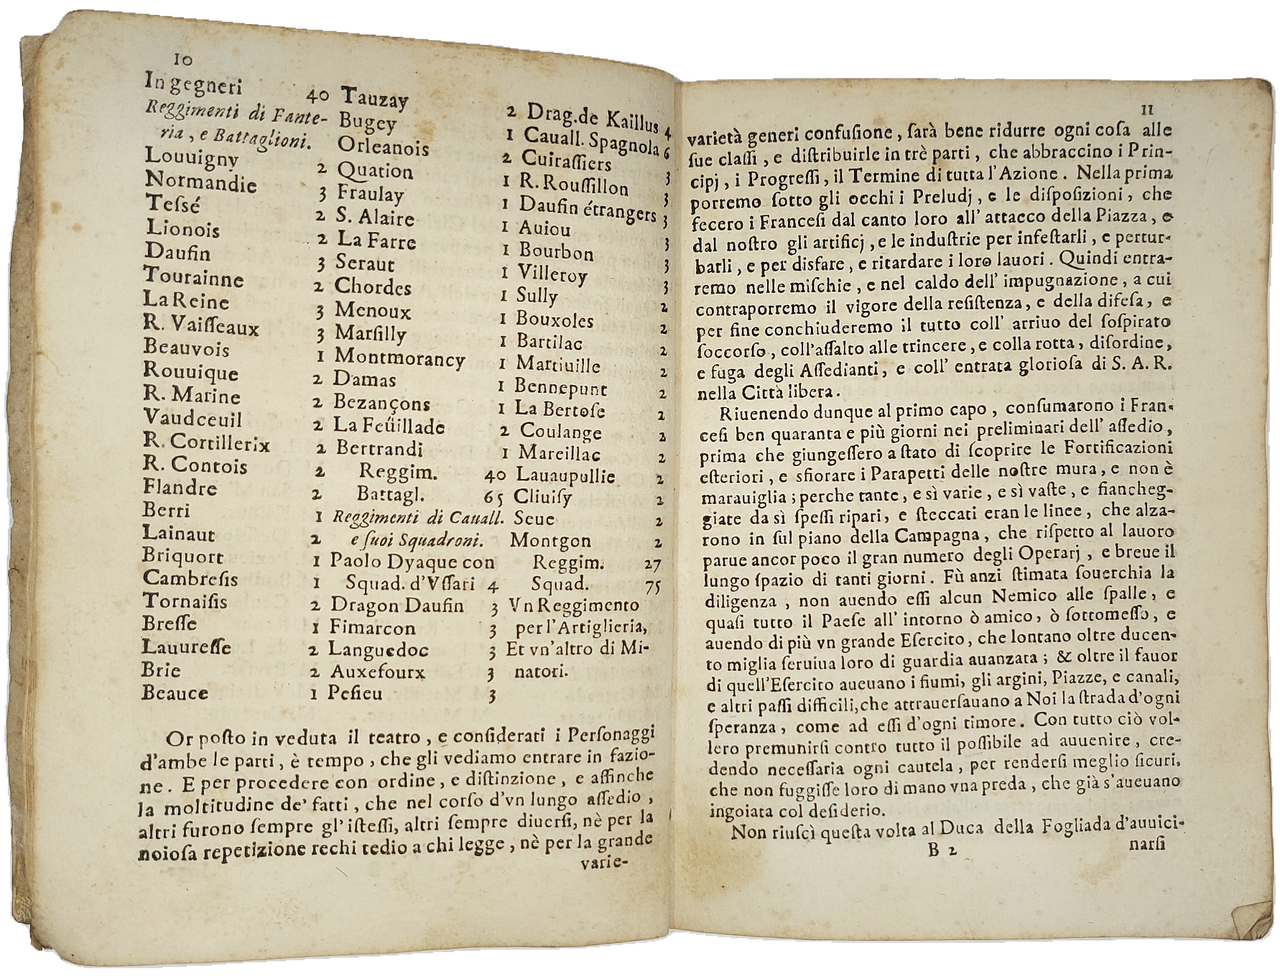 10
Ingegneri 40
Reggimenti di Fante-
ria, e Battaglioni.
Louuigny 2
Normandie 3
Teſsé 2
Lionois 2
Daufin 3
Tourainne 2
La Reine 3
R. Vaiſſeaux 3
Beauvois 1
Rouuique 2
R. Marine 2
Vaudceuil 2
R. Cortillerix 2
R. Contois 2
Flandre 2
Berri 1
Lainaut 2
Briquort 1
Cambreſis 1
Tornaiſis 2
Breſſe 1
Lauureſſe 2
Brie 2
Beauce 1
Tauzay 2
Bugey 1
Orleanois 2
Quation 1
Fraulay 1
S. Alaire 1
La Farre 1
Seraut 1
Chordes 1
Menoux 1
Marſilly 1
Montmorancy 1
Damas 1
Bezançons 1
La Feüillade 2
Bertrandi 1
Reggim. 40
Battagl. 65
Reggimenti di Cauall.
e ſuoi Squadroni.
Paolo Dyaque con
Squad. d'Vſſari 4
Dragon Daufin 3
Fimarcon 3
Languedoc 3
Auxefourx 3
Peſieu 3
Drag.de Kaillus 4
Cauall. Spagnola 6
Cuiraſſiers 3
R. Rouſſillon 3
Daufin étrangers 3
Auiou 3
Bourbon 3
Villeroy 3
Sully 2
Bouxoles 2
Bartilac 2
Martiuille 2
Bennepunt 2
La Bertoſe 2
Coulange 2
Marcillac 2
Lauaupullie 2
Cliuiſy 2
Seue 2
Montgon 2
Reggim. 27
Squad. 75
Vn Reggimento
per l'Artiglieria,
Et vn'altro di Mi-
natori.
Or poſto in veduta il teatro, e conſiderati i Perſonaggi
d'ambe le parti, è tempo, che gli vediamo entrare in fazio-
ne. E per procedere con ordine, e diſtinzione, e affinche
la moltitudine de' fatti, che nel corſo d'vn lungo aſſedio,
altri furono ſempre gl' iſteſſi, altri ſempre diuerſi, nè per la
noioſa repetizione rechi tedio a chi legge, nè per la grande
varie-
11
varietà generi confuſione, ſarà bene ridurre ogni coſa alle
ſue claſſi, e diſtribuirle in trè parti, che abbraccino i Prin-
cipj, i Progreſſi, il Termine di tutta l'Azione. Nella prima
porremo ſotto gli occhi i Preludj, e le diſpoſizioni, che
fecero i Franceſi dal canto loro all' attacco della Piazza, e
dal noſtro gli artificj, e le induſtrie per infeſtarli, e pertur-
barli, e per disfare, e ritardare i loro lauori. Quindi entra-
remo nelle miſchie, e nel caldo dell' impugnazione, a cui
contraporremo il vigore della reſiſtenza, e della difeſa, e
per fine conchiuderemo il tutto coll' arriuo del ſoſpirato
ſoccorſo, coll'aſſalto alle trincere, e colla rotta, diſordine,
e fuga degli Aſſedianti, e coll' entrata glorioſa di S. A. R.
nella Città libera.
Riuenendo dunque al primo capo, conſumarono i Fran-
ceſi ben quaranta e più giorni nei preliminari dell' aſſedio,
prima che giungeſſero a ſtato di ſcoprire le Fortificazioni
eſteriori, e sfiorare i Parapetti delle noſtre mura, e non è
marauiglia; perche tante, e sì varie, e sì vaſte, e fiancheg-
giate da sì ſpeſſi ripari, e ſteccati eran le linee, che alza-
rono in ſul piano della Campagna, che riſpetto al lauoro
parue ancor poco il gran numero degli Operarj, e breue il
lungo ſpazio di tanti giorni. Fù anzi ſtimata ſouerchia la
diligenza, non auendo eſſi alcun Nemico alle ſpalle, e
quaſi tutto il Paeſe all' intorno ò amico, ò ſottomeſſo, e
auendo di più vn grande Eſercito, che lontano oltre ducen-
to miglia ſeruiua loro di guardia auanzata; & oltre il fauor
di quell'Eſercito aueuano i fiumi, gli argini, Piazze, e canali,
e altri paſſi difficili,che attrauerſauano a Noi la ſtrada d'ogni
ſperanza, come ad eſſi d'ogni timore. Con tutto ciò vol-
lero premunirſi contro tutto il poſſibile ad auuenire, cre-
dendo neceſſaria ogni cautela, per renderſi meglio ſicuri,
che non fuggiſſe loro di mano vna preda, che già s'aueuano
ingoiata col deſiderio.
Non riuſcì queſta volta al Duca della Fogliada d'auuici-
B 2
narſi